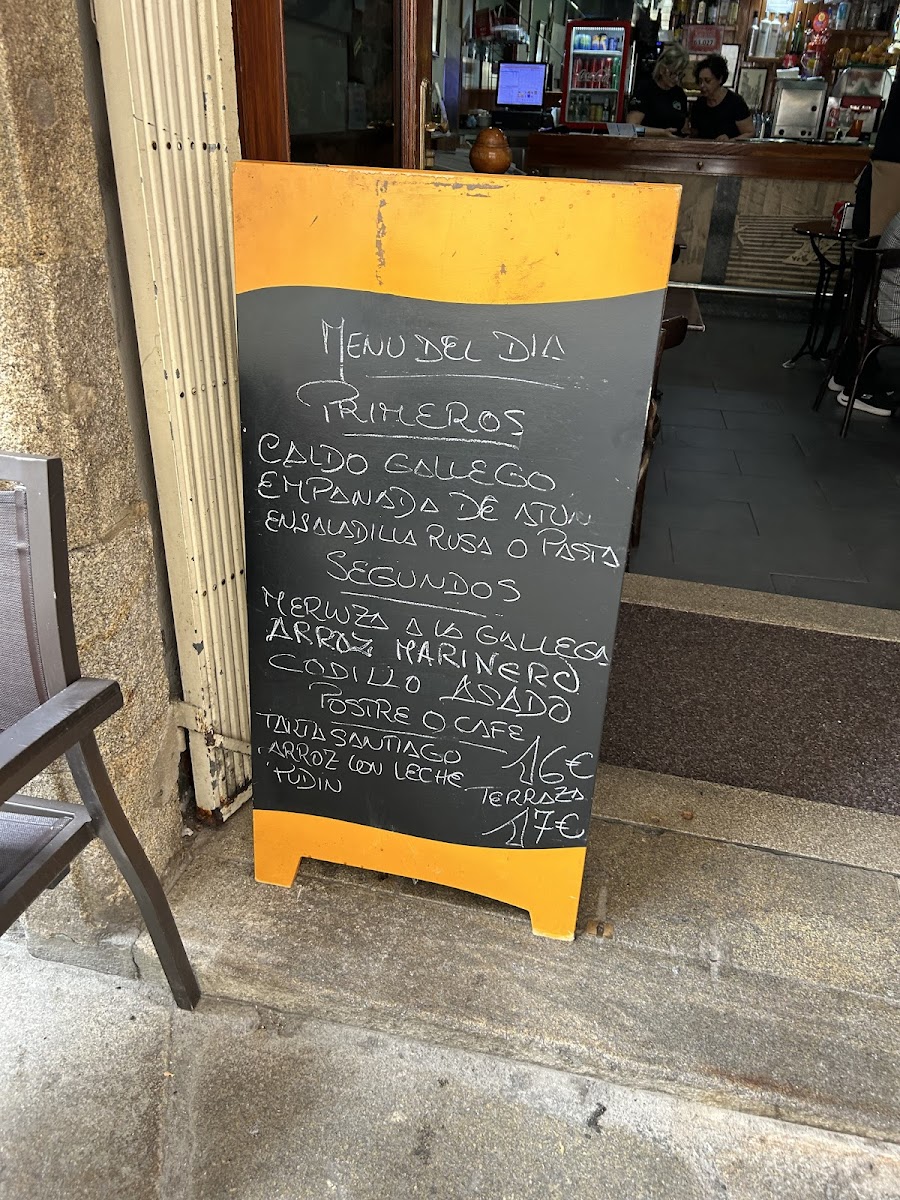 MENU DEL DIA
PRIMEROS
CALDO GALLEGO
EMPANADA DE ATUN
ENSALADILLA RUSA O PASTA
SEGUNDOS
MERLUZA A LA GALLEGA
ARROZ MARINERO
CODILLO ASADO
POSTRE O CAFE
TARTA SANTIAGO
ARROZ CON LECHE
PUDIN
16€
TERRAZA
17€